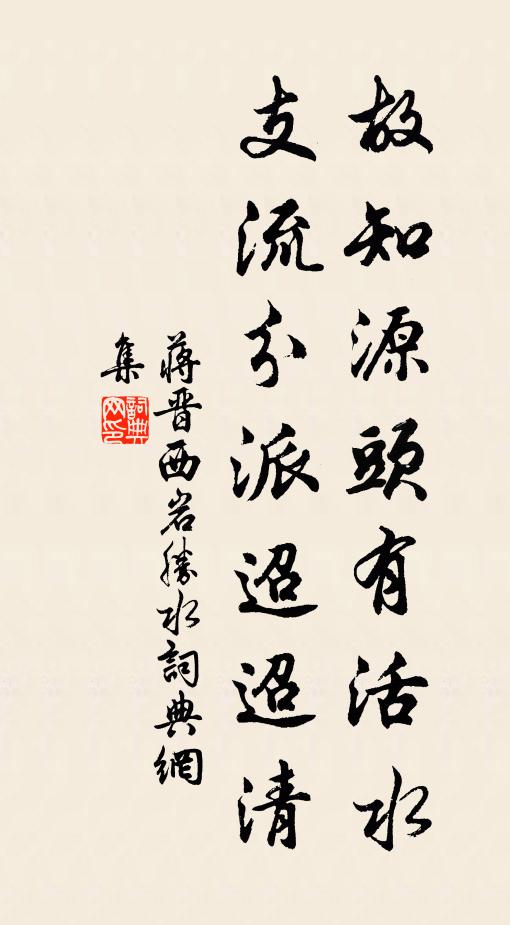 故知源頭有活水
支流分派迢迢清
蔣晋西岩勝水詞典網
集
詞典网印